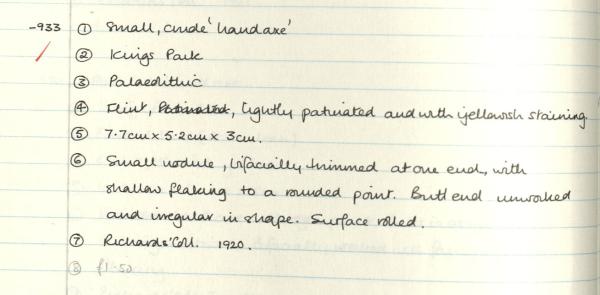 -933 ① Small, crude 'handaxe'
② Kings Park
③ Palaeolithic
④ Flint, Patinated, lightly patinated and with yellowish staining.
⑤ 7.7cm x 5.2cm x 3cm.
⑥ Small nodule, bifacially trimmed at one end, with
shallow flaking to a rounded point. Butt end unworked
and irregular in shape. Surface rolled.
⑦ Richards' Coll. 1920.
⑧ £1.50